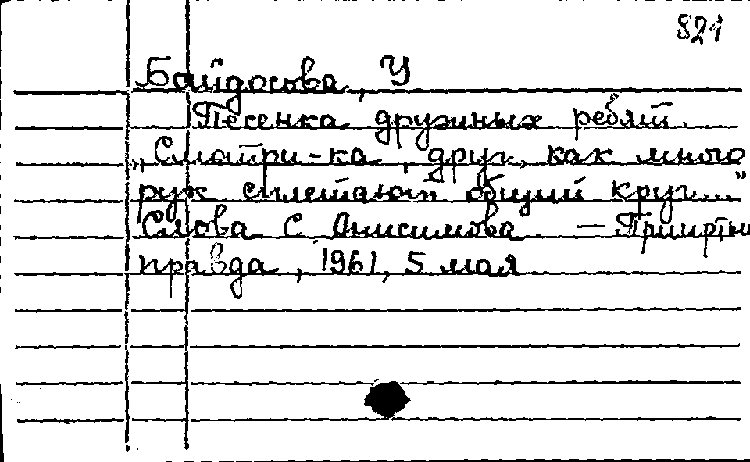 821
Байдосова, У
Песенка дружных ребят.
„Смотри-ка, друг, как много
рук сплетают общий круг..."
Слова С. Анисимова. — Прииртыш
правда, 1961, 5 мая